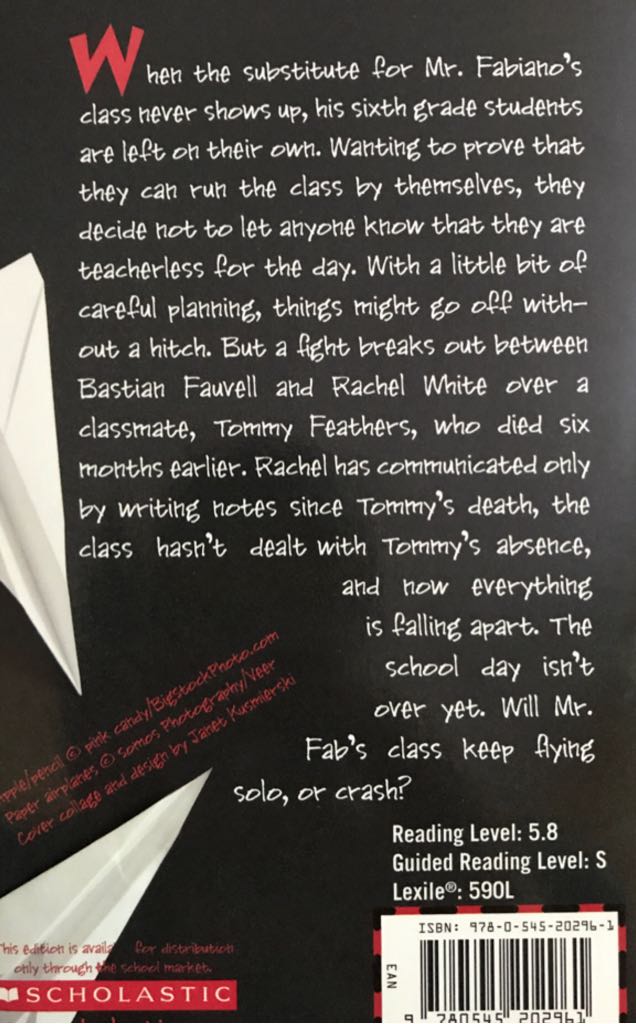 When the substitute for Mr. Fabiano's
class never shows up, his sixth grade students
are left on their own. Wanting to prove that
they can run the class by themselves, they
decide not to let anyone know that they are
teacherless for the day. With a little bit of
careful planning, things might go off with-
out a hitch. But a fight breaks out between
Bastian Fauvell and Rachel White over a
classmate, Tommy Feathers, who died six
months earlier. Rachel has communicated only
by writing notes since Tommy's death, the
class hasn't dealt with Tommy's absence,
and now everything
is falling apart. The
school day isn't
over yet. Will Mr.
Fab's class keep flying
solo, or crash?
Apple/pencil © pink candy/BigstockPhoto.com
Paper airplanes © Somos Photography/Veer
Cover collage and design by Janet Kusmierski
Reading Level: 5.8
Guided Reading Level: S
Lexile®: 590L
ISBN: 978-0-545-20296-1
EAN
9 780545 202961
This edition is availa for distribution
only through the school market.
SCHOLASTIC